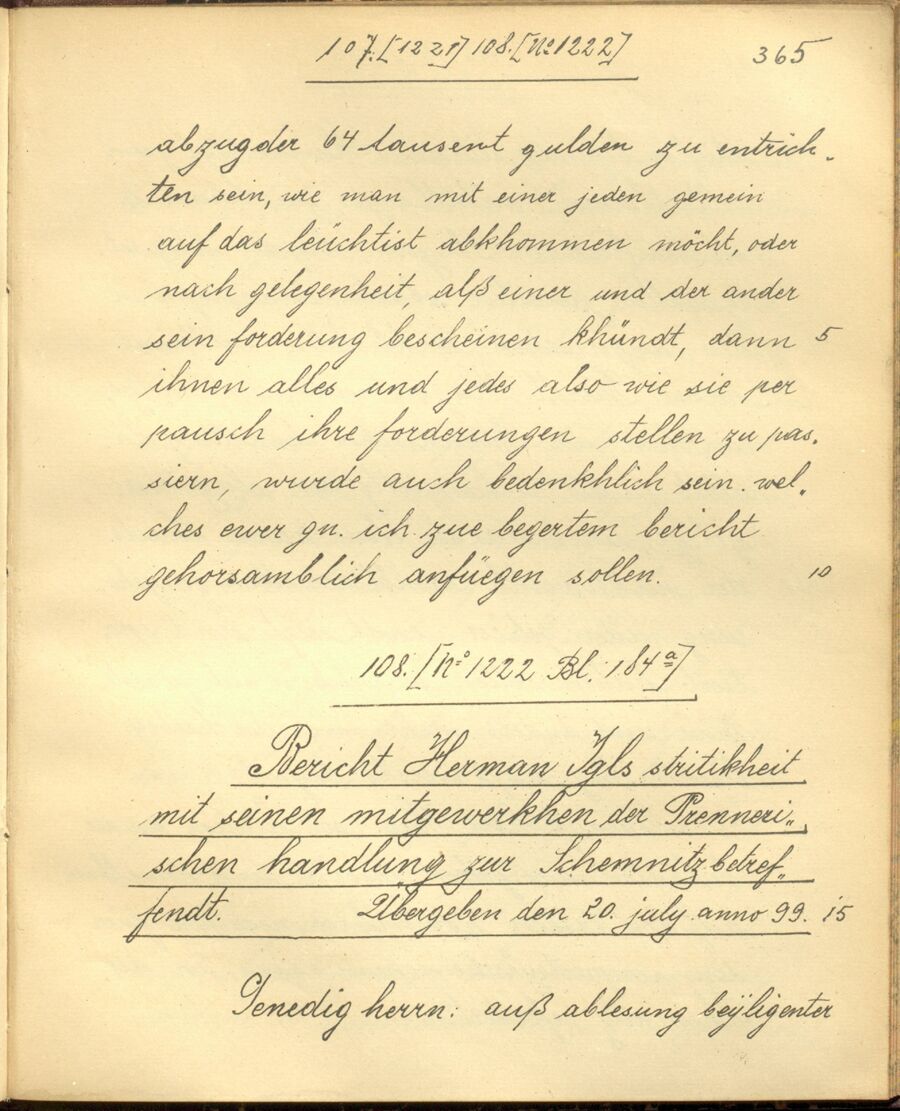 107.[1221] 108.[No 1222] 365
abzug der 64 tausent gulden zu entrich„
ten sein, wie man mit einer jeden gemein
auf das leüchtist abkhommen möcht, oder
nach gelegenheit, alß einer und der ander
sein forderung bescheinen khündt, dann 5
ihnen alles und jedes also wie sie per
pausch ihre forderungen stellen zu pas„
siern, wurde auch bedenkhlich sein. wel„
ches ewer gn. ich zue begertem bericht
gehorsamblich anfüegen sollen. 10
108. [No 1222 Bl. 184a]
Bericht Herman Igls stritikheit
mit seinen mitgewerkhen der Prenneri„
schen handlung zur Schemnitz betref„
fendt. Übergeben den 20. july anno 99. 15
Genedig herrn: auß ablesung beÿligenter